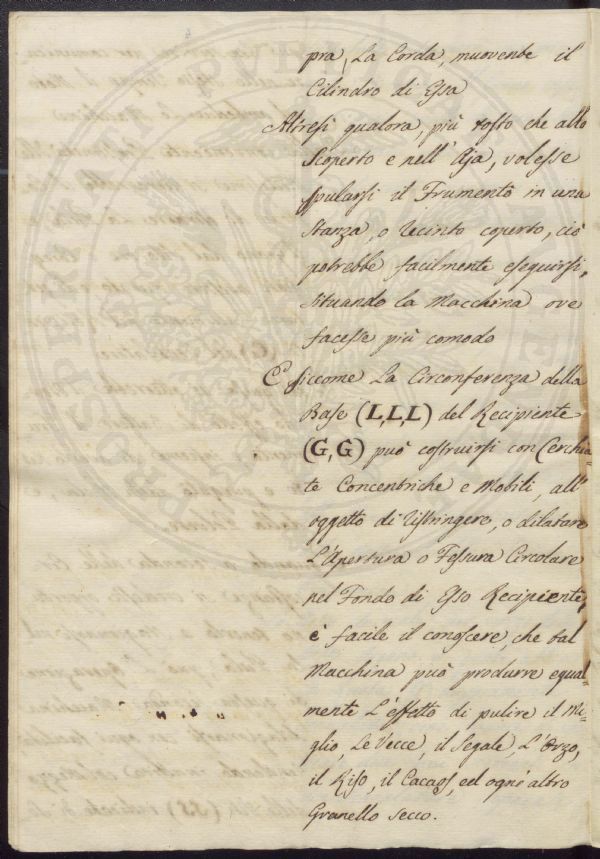 pra, La Corda, muovente il
Cilindro di Essa
Altresì qualora, più tosto che allo
Scoperto e nell' Aja, volesse
spularsi il Frumento in una
Stanza, o recinto coperto, ciò
potrebbe facilmente eseguirsi,
situando la Macchina ove
facesse più comodo
E siccome La Circonferenza della
Base (L,L,L) del Recipiente
(G,G) può costruirsi con Cerchia-
te Concentriche e Mobili, all'
oggetto di ristringere, o dilatare
L'Apertura o Fessura Circolare
nel Fondo di Esso Recipiente,
è facile il conoscere, che tal
Macchina può produrre equal-
mente L'effetto di pulire il Mi-
glio, Le Vecce, il Segale, L'Orzo,
il Riso, il Cacaos, ed ogni altro
Granello secco.